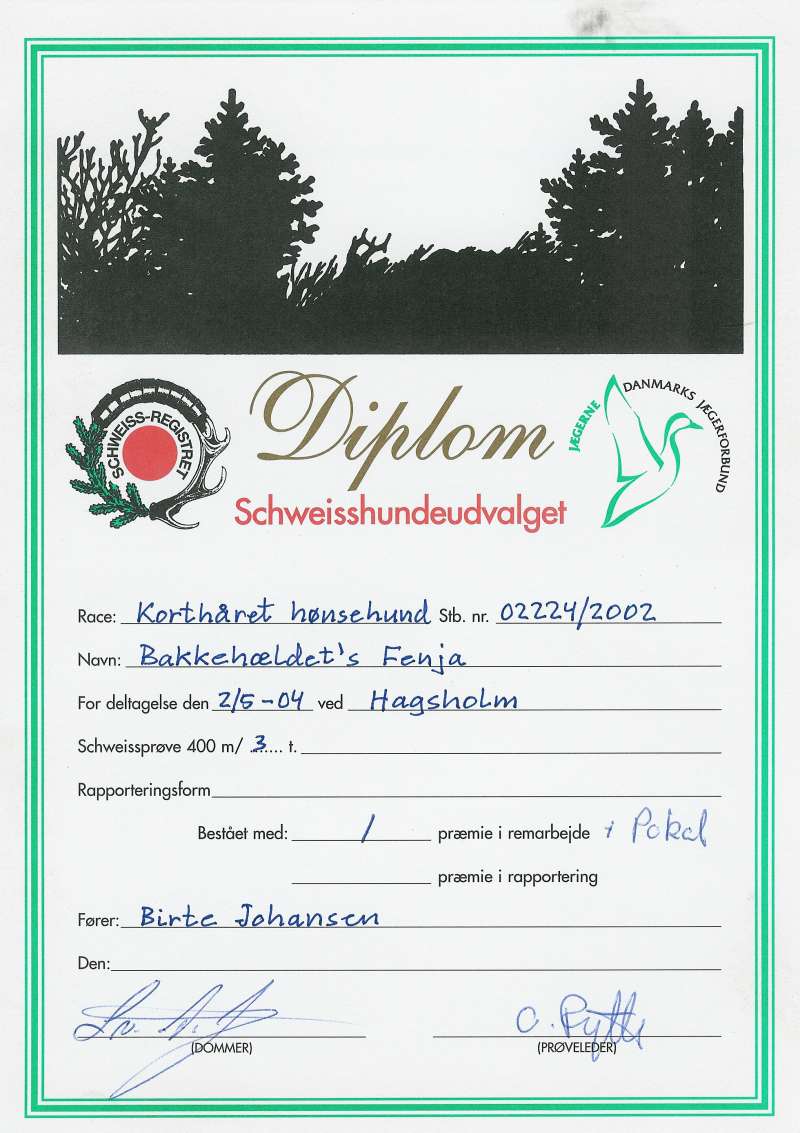 Diplom
SCHWEISS-REGISTRET
JÆGERNE
DANMARKS JÆGERFORBUND
Schweisshundeudvalget
Race: Korthåret hønsehund Stb. nr. 02224/2002
Navn: Bakkehældet's Fenja
For deltagelse den 2/5-04 ved Hagsholm
Schweissprøve 400 m/ 3..... t.
Rapporteringsform
Bestået med: 1 præmie i remarbejde + Pokal
præmie i rapportering
Fører: Birte Johansen
Den:
C. Pytte
(DOMMER) (PRØVELEDER)